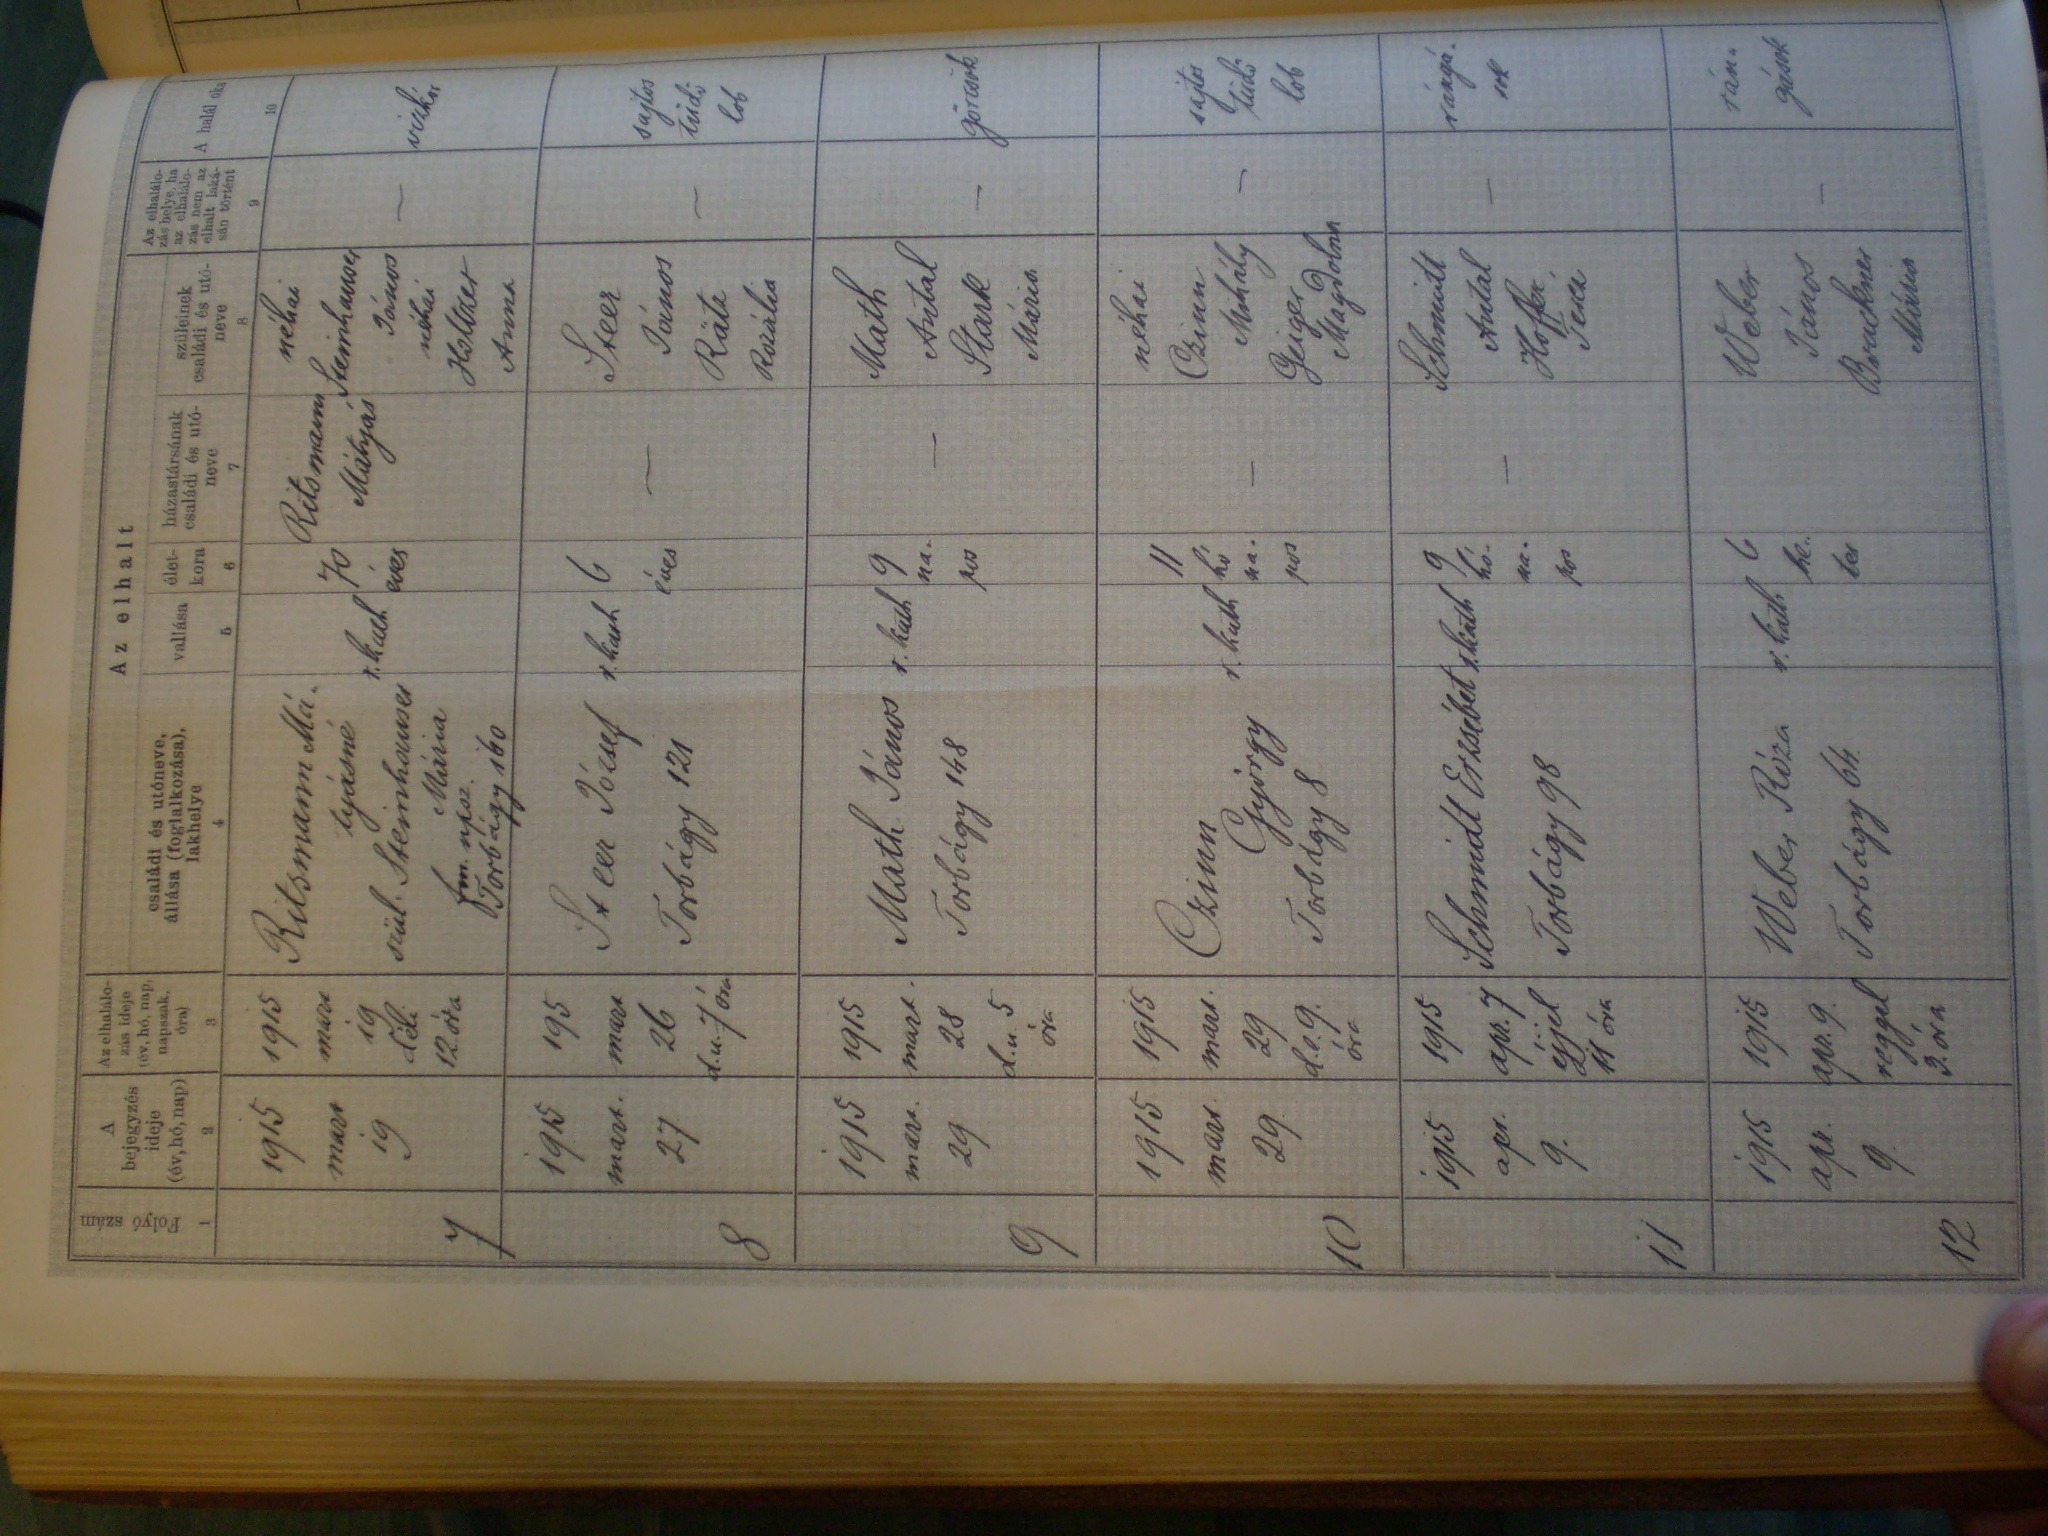 Az elhalt
Folyó szám
A
bejegyzés
ideje
(év, hó, nap)
Az elhalálo-
zás ideje
(év, hó, nap,
napszak,
óra)
családi és utóneve,
állása (foglalkozása),
lakhelye
vallása
élet-
kora
házastársának
családi és utó-
neve
szüleinek
családi és utó-
neve
Az elhalálo-
zás helye, ha
az elhalálo-
zás nem az
elhalt laká-
sán történt
A halál oka
1
2
3
4
5
6
7
8
9
10
7
1915
mars
19
1915
mars
19
déli
12 óra
Ritsmann Má-
tyásné
szül. Steinhauser
Mária
fm. npsz.
Torbágy 160
r. kath
70
éves
Ritsmann
Mátyás
néhai
Steinhauser
János
néhai
Holtzer
Anna
—
vízkór
8
1915
mars.
27
195
mars
26
d.u. 7 óra
Steer József
Torbágy 121
r. kath
6
éves
—
Steer
János
Ráth
Rozália
—
sajtos
tüdő
lob
9
1915
mars.
29
1915
mars.
28
d.u. 5
óra
Math János
Torbágy 148
r. kath
9
na-
pos
—
Math
Antal
Stark
Mária
—
görcsök
10
1915
mars.
29
1915
mars.
29
d.e. 9.
óra
Czinn
György
Torbágy 8
r. kath
11
hó
na-
pos
—
néhai
Czinn
Mihály
Geiger
Magdolna
—
sajtos
tüdő
lob
11
1915
apr.
9.
1915
apr. 7
éjjel
11 óra
Schmidt Erzsébet
Torbágy 98
r. kath
9
hó-
na-
pos
—
Schmidt
Antal
Teréz
—
rángá-
sok
12
1915
apr.
9.
1915
apr. 9.
reggel
3. óra
Weber Róza
Torbágy 64.
r. kath
6
he-
tes
Weber
János
Bruckner
Mária
—
rán-
gások